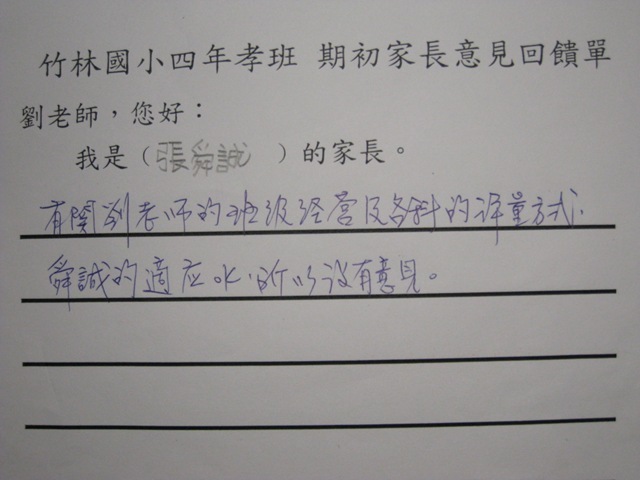 竹林國小四年孝班 期初家長意見回饋單
劉老師，您好：
我是（張舜誠 ）的家長。
有関劉老师的班级经营及各科的评量方式.
舜誠的適应 所以没有意見。